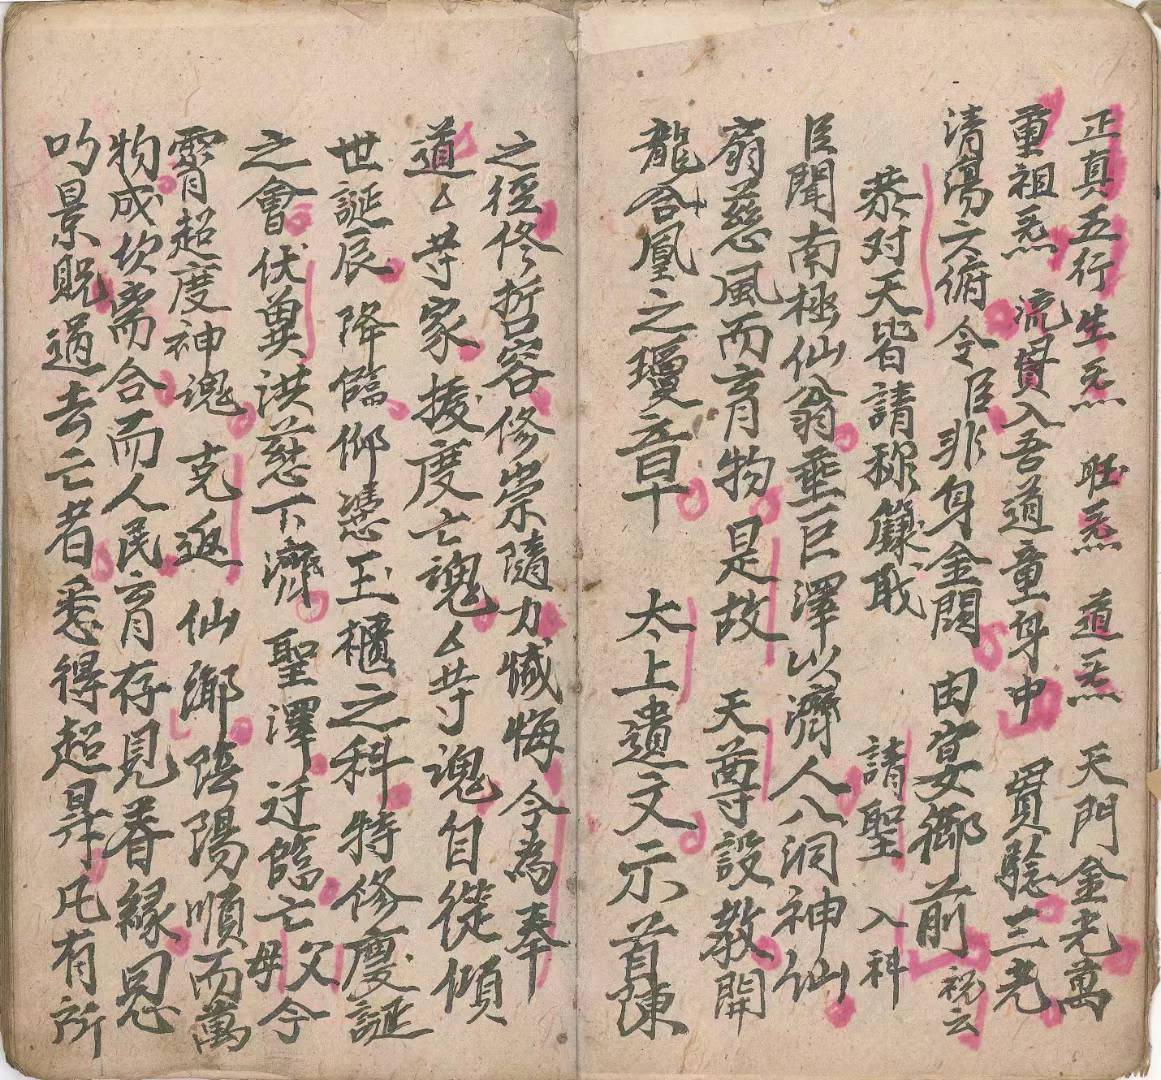 正真五行生炁 旺炁 道炁 天門金光萬
重祖炁 流貫入吾道童身中 買騐三光
清濁六府令臣非身金闕 由宴御前 祝云
恭对天皆請称籙職 請聖 入科
臣聞南極仙翁垂巨澤以濟人八洞神仙
扇慈風而育物 是故 天尊設教開
龍合凰之瓊音 太上遺文示首陳
之徑修哲容修崇隨力懴悔今為奉
道厶等家援度亡魂厶等魂自從傾
世誕辰降臨仰憑玉櫃之科特修慶誕
之會伏冀洪慈下濟 聖澤迂臨亡父母今
霄超度神魂 克返 仙鄉陰陽順而萬
物成坎离合而人民育存見眷緣同
景貺過去亡者悉得超昇凡有所